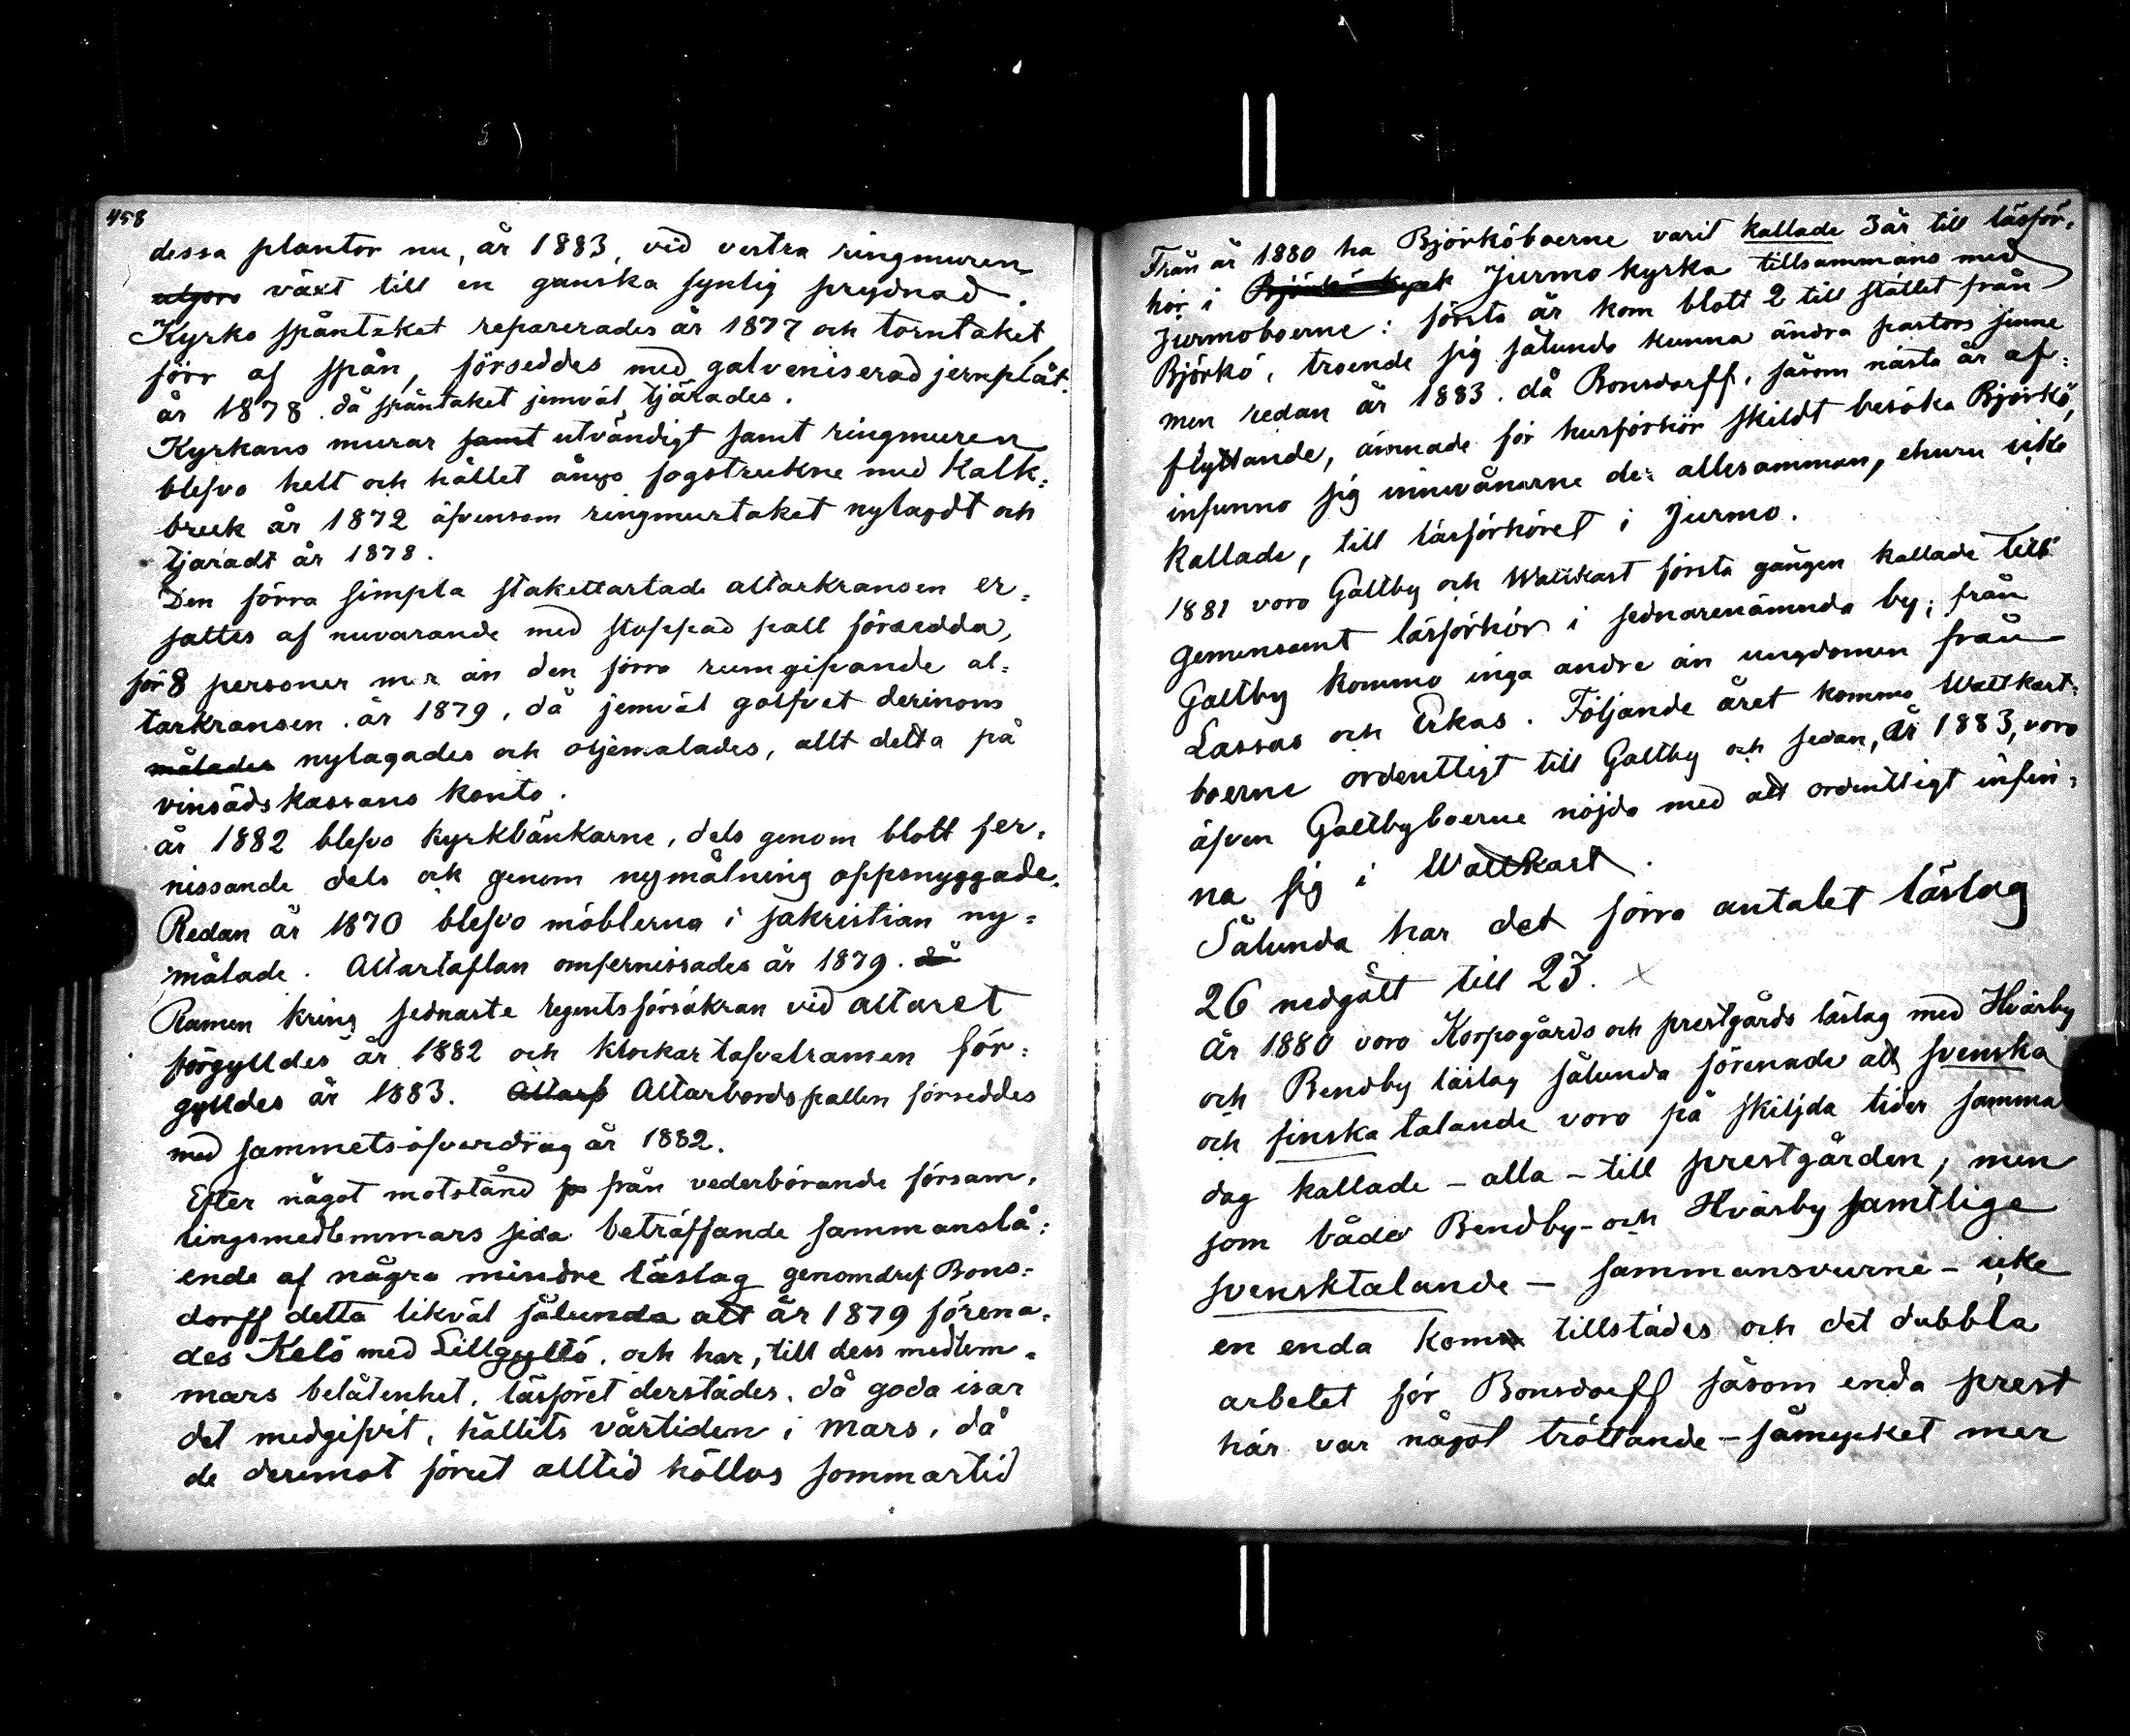 458
dessa plantor nu, år 1883, vid vestra ringmuren
utgöra växt till en ganska synlig prydnad.
Kyrko spåntaket reparerades år 1877 och torntaket,
förr af spån, förseddes med galveniserad jernplåt
år 1878. då spåntaket jemväl tjärades.
Kyrkans murar samt utvändigt samt ringmuren
blefvo helt och hållet ånyo fogstrukne med Kalk=
bruk år 1872 äfvensom ringmurtaket nylagdt och
tjäradt år 1878.
Den förra simpla stakettartade altarkransen er=
sattes af nuvarande med stoppad pall försedda,
för 8 personer mer än den förra rumgifvande al=
tarkransen. år 1879, då jemväl golfvet derinom
målades nylagades och oljemalades, allt detta på
vinsädskassans konto.
år 1882 blefvo kyrkbänkarne, dels genom blott fer=
nissande dels ock genom nymålning oppsnyggade.
Redan år 1870 blefvo möblerna i sakristian ny=
målade. Altartaflan omfernissades år 1879. då
Ramen kring sednaste regentsförsäkran vid altaret
förgylldes år 1882 och klockartafvelramen för=
gylldes år 1883. Altarb Altarbordspallen förseddes
med sammetsöfverdrag år 1882.
Efter något motstånd fr från vederbörande försam=
lingsmedlemmars sida beträffande sammanslå=
ende af några mindre läslag genomdref Bons=
dorff detta likväl sålunda att år 1879 förena=
des Kelö med Lillgyltö, och har, till dess medlem=
mars belåtenhet, läsföret derstädes, då goda isar
det medgifvit, hållits vårtiden i Mars, då
de deremot förut alltid hållos sommartid
Från år 1880 ha Björköboerne varit kallade 3 år till läsför=
hör i Björkö kyrk Jurmo kyrka tillsammans med
Jurmoboerne: första år kom blott 2 till stället från
Björkö, troende sig sålunda kunna ändra pastors sinne
men redan år 1883. då Bonsdorff, såsom nästa år af=
flyttande, ämnade för husförhör skildt besöka Björkö,
infunno sig innevånarne der allesamman, ehuru icke
kallade, till läsförhöret i Jurmo.
1881 voro Galtby och Wattkast första gången kallade till
gemensamt läsförhör i sednarenämnda by; från
Galtby kommo inga andra än ungdomen från
Lassas och Erkas. Följande året kommo Wattkast=
boerne ordentligt till Galtby och sedan, År 1883, voro
äfven Galtbyboerne nöjda med att ordentligt infin=
na sig i Wattkast.
Sålunda har det förra antalet läslag
26 nedgått till 23. x
År 1880 voro Korpogårds och prestgårds läslag med Hvårby
och Rendby läslag sålunda förenade att svenska
och finska talande voro på skiljda tider samma
dag kallade – alla – till prestgården; men
som både Rendby- och Hvårby samtlige
svensktalande – sammansvurne – icke
en enda kom tillstädes och det dubbla
arbetet för Bonsdorff såsom enda prest
här var något tröttande – såmycket mer